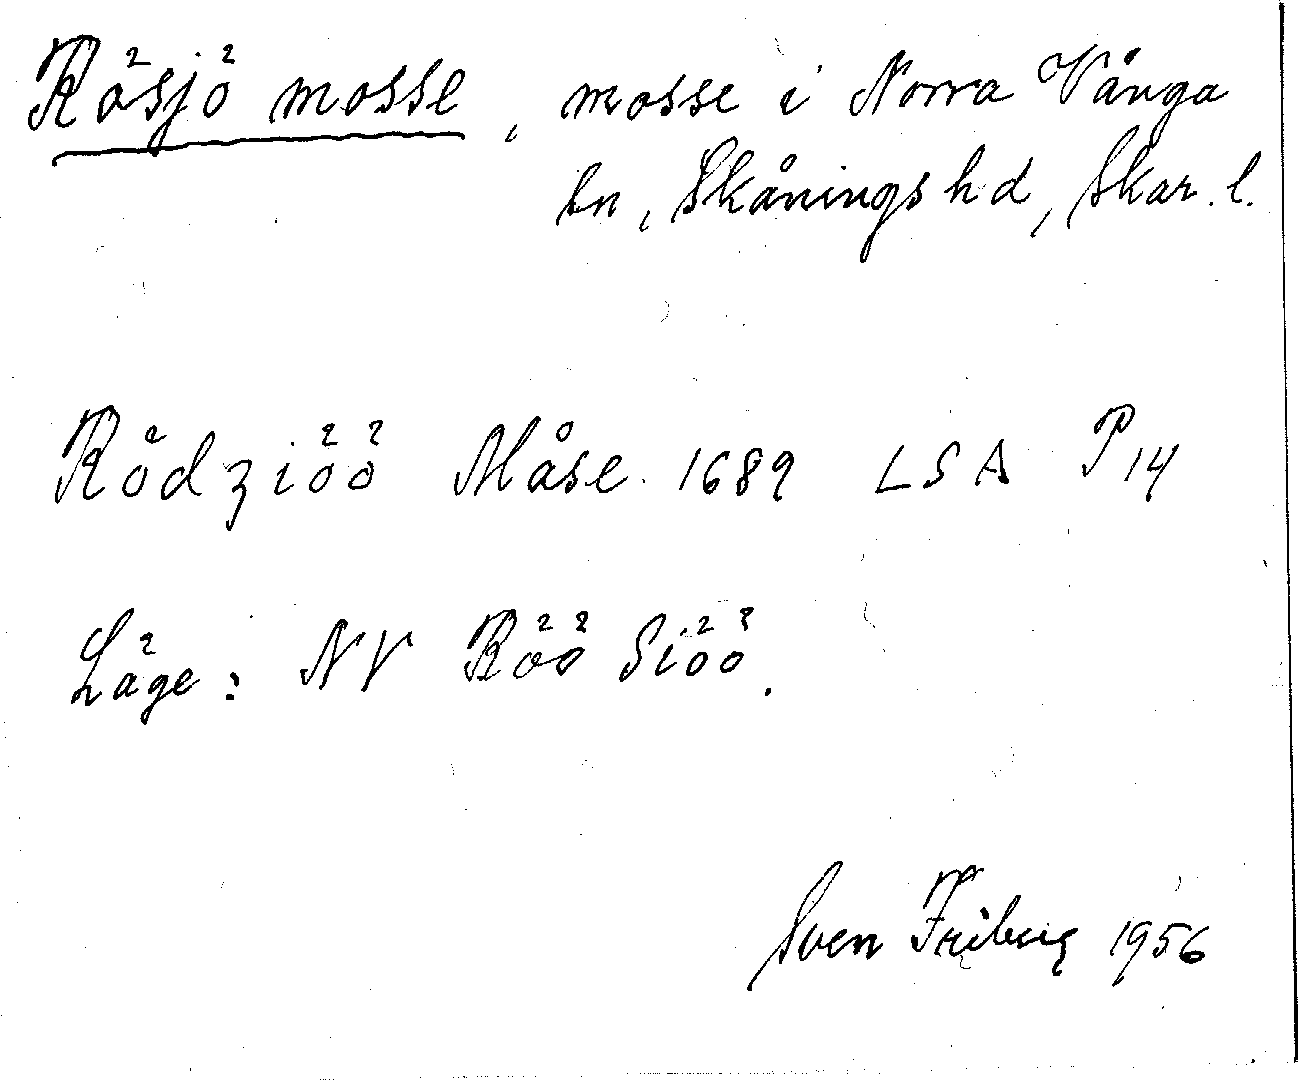 Rösjö mosse, mosse i Norra Vånga
sn, Skånings hd, Skar. l.
Rödziöö Måse. 1689 LSA P14
Läge: NV Röö Siöö.
Sven Friberg 1956